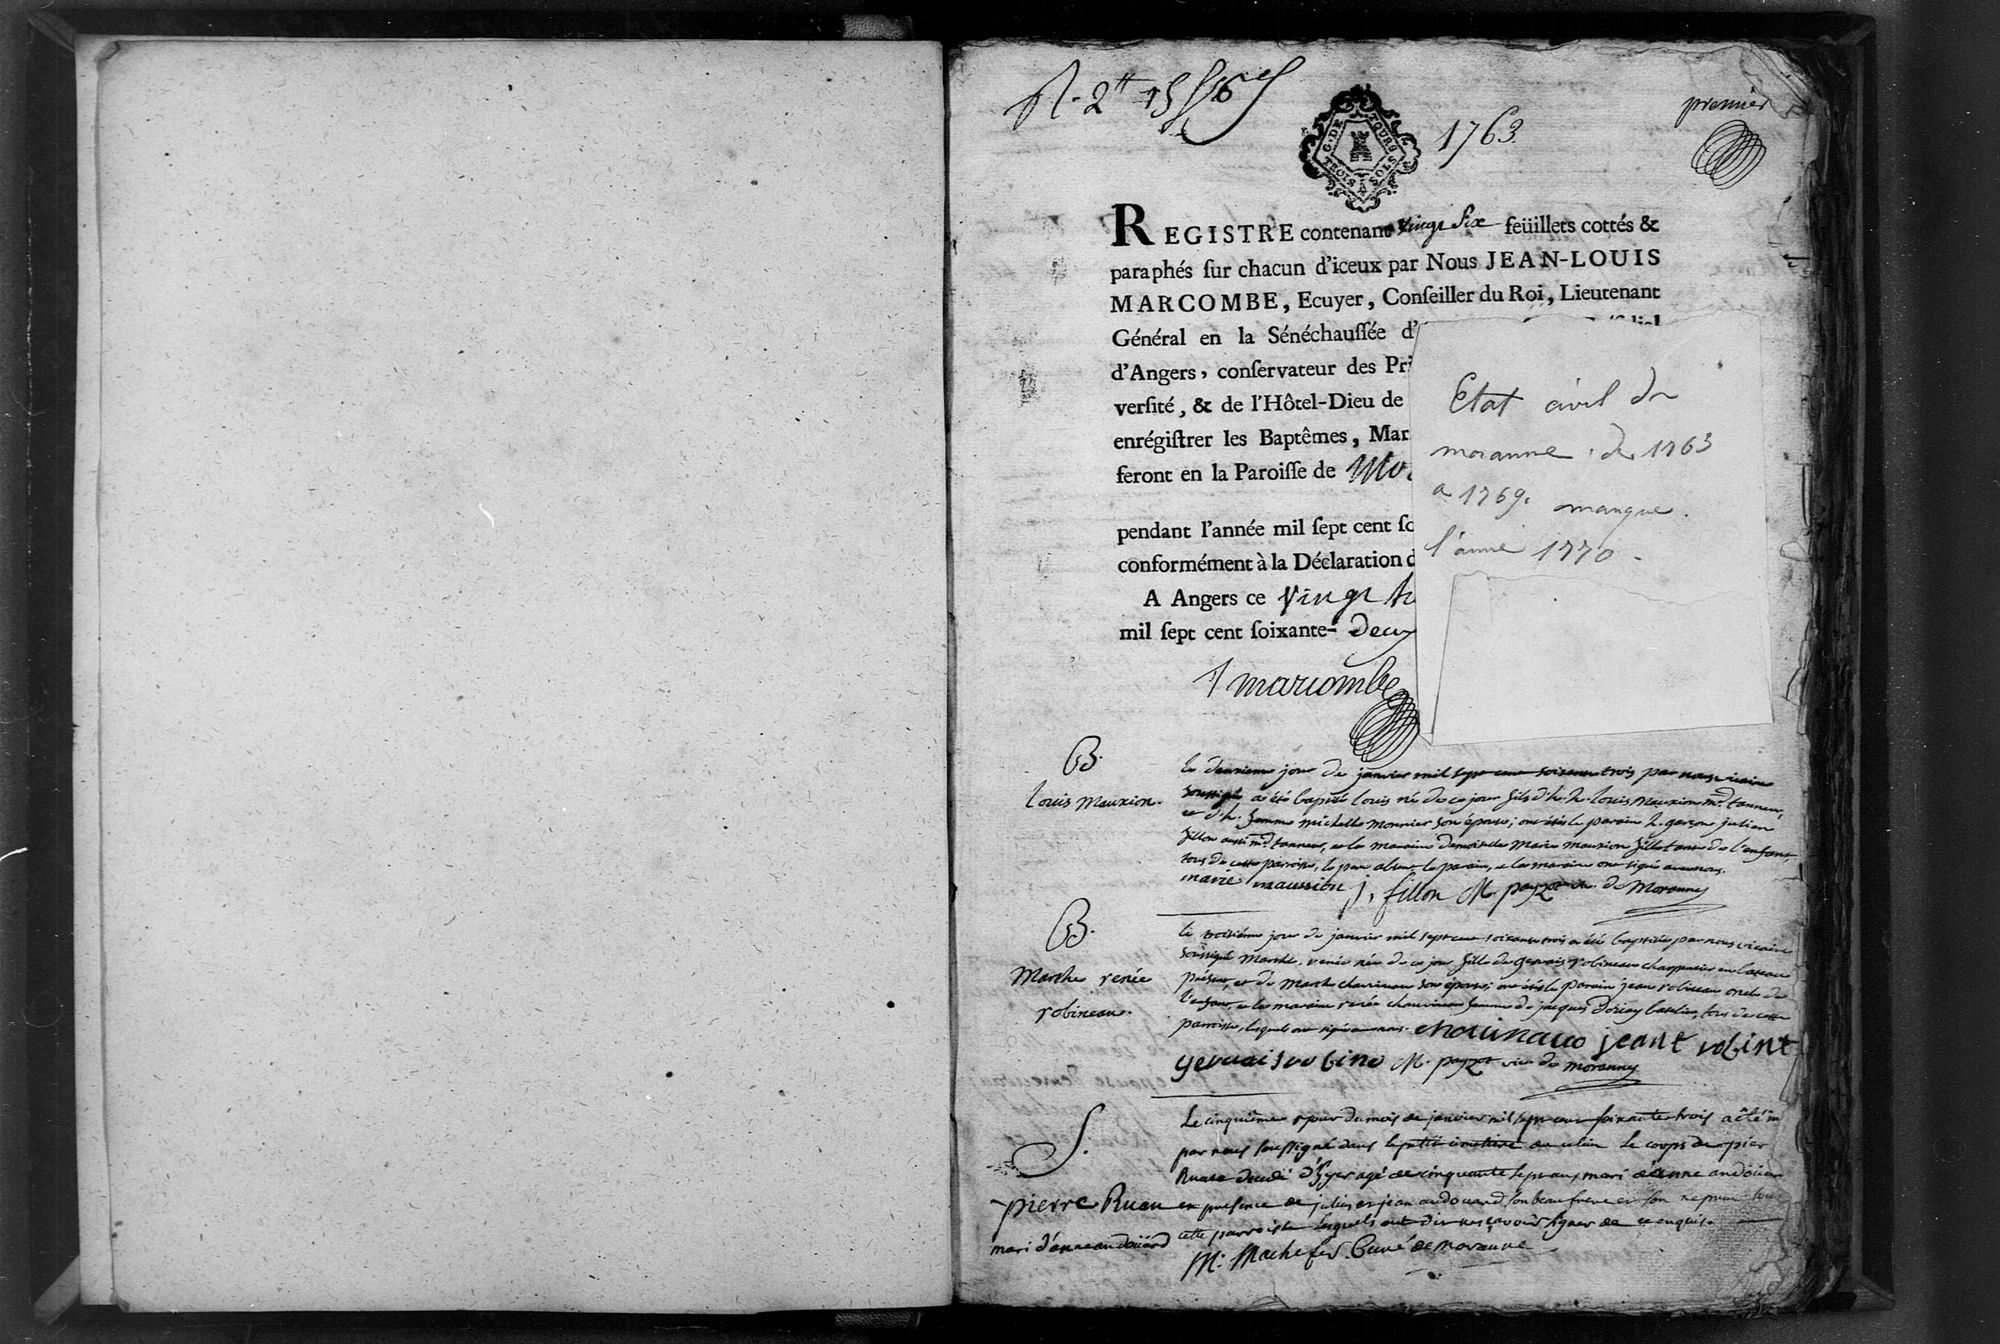 R. 2ᵗᵗ 15ˢ 6ᵈ
G. DE TOURS
TROIS SOLS
1763.
premier
REGISTRE contenant vingt Six feüillets cottés &
paraphés ſur chacun d'iceux par Nous JEAN-LOUIS
MARCOMBE, Ecuyer, Conſeiller du Roi, Lieutenant
Général en la Sénéchauſſée d'
d'Angers, conſervateur des Pri
verſité, & de l'Hôtel-Dieu de
enrégiſtrer les Baptêmes, Mar
feront en la Paroiſſe de Mor
pendant l'année mil ſept cent ſo
conformément à la Déclaration d
A Angers ce vingt h
mil ſept cent ſoixante- deux
marcombe
Etat civil de
moranne de 1763
a 1769. manque
l'année 1770.
B.
Louis Mauxion.
le deuxieme jour de janvier mil sept cent soixante trois par nous vicaire
soussigné a été baptisé louis né de ce jour fils d'h. h. louis Mauxion md tanneur,
et d'h. femme michelle monnier son épouse; ont étés le parain h. garçon julien
fillon aussi md tanneur, et la maraine demoiselle Marie mauxion fille tante de l'enfant
tous de cette parroisse, le pere absent, le parain, et la maraine ont signé avec nous.
marie maussion j. fillon M. payzot vic. de Moranne
B.
Marthe renée
robineau.
le troisième jour de janvier mil sept cent soixante trois a été baptisée par nous vicaire
soussigné Marthe, renée née de ce jour fille de gervais robineau charpentier en bateau
présent, et de Marthe chauvineau son épouse; ont étés le parain jean robineau oncle de
l'enfant, et la maraine renée chauvineau femme de jacques batelier, tous de cette
parroisse, lesquels ont signé avec nous. chouinauo jeant robint
gervais robino M. payzot vic de moranne
S.
pierre Ruau
mari d'anne audoüard
Le cinquième jour du mois de janvier mil sept cent soixante trois a été in
par nous soussigné dans le petit cimetiere de ce lieu le corps de pier
Ruau decedé d'hyer agé de cinquante sept ans mari d'anne audoüar
en presence de julien et jean audouard son beau frere et son neveu tous
cette parroisse lesquels ont dit ne sçavoir signer de ce enquis.
M. Machefer Curé de moranne